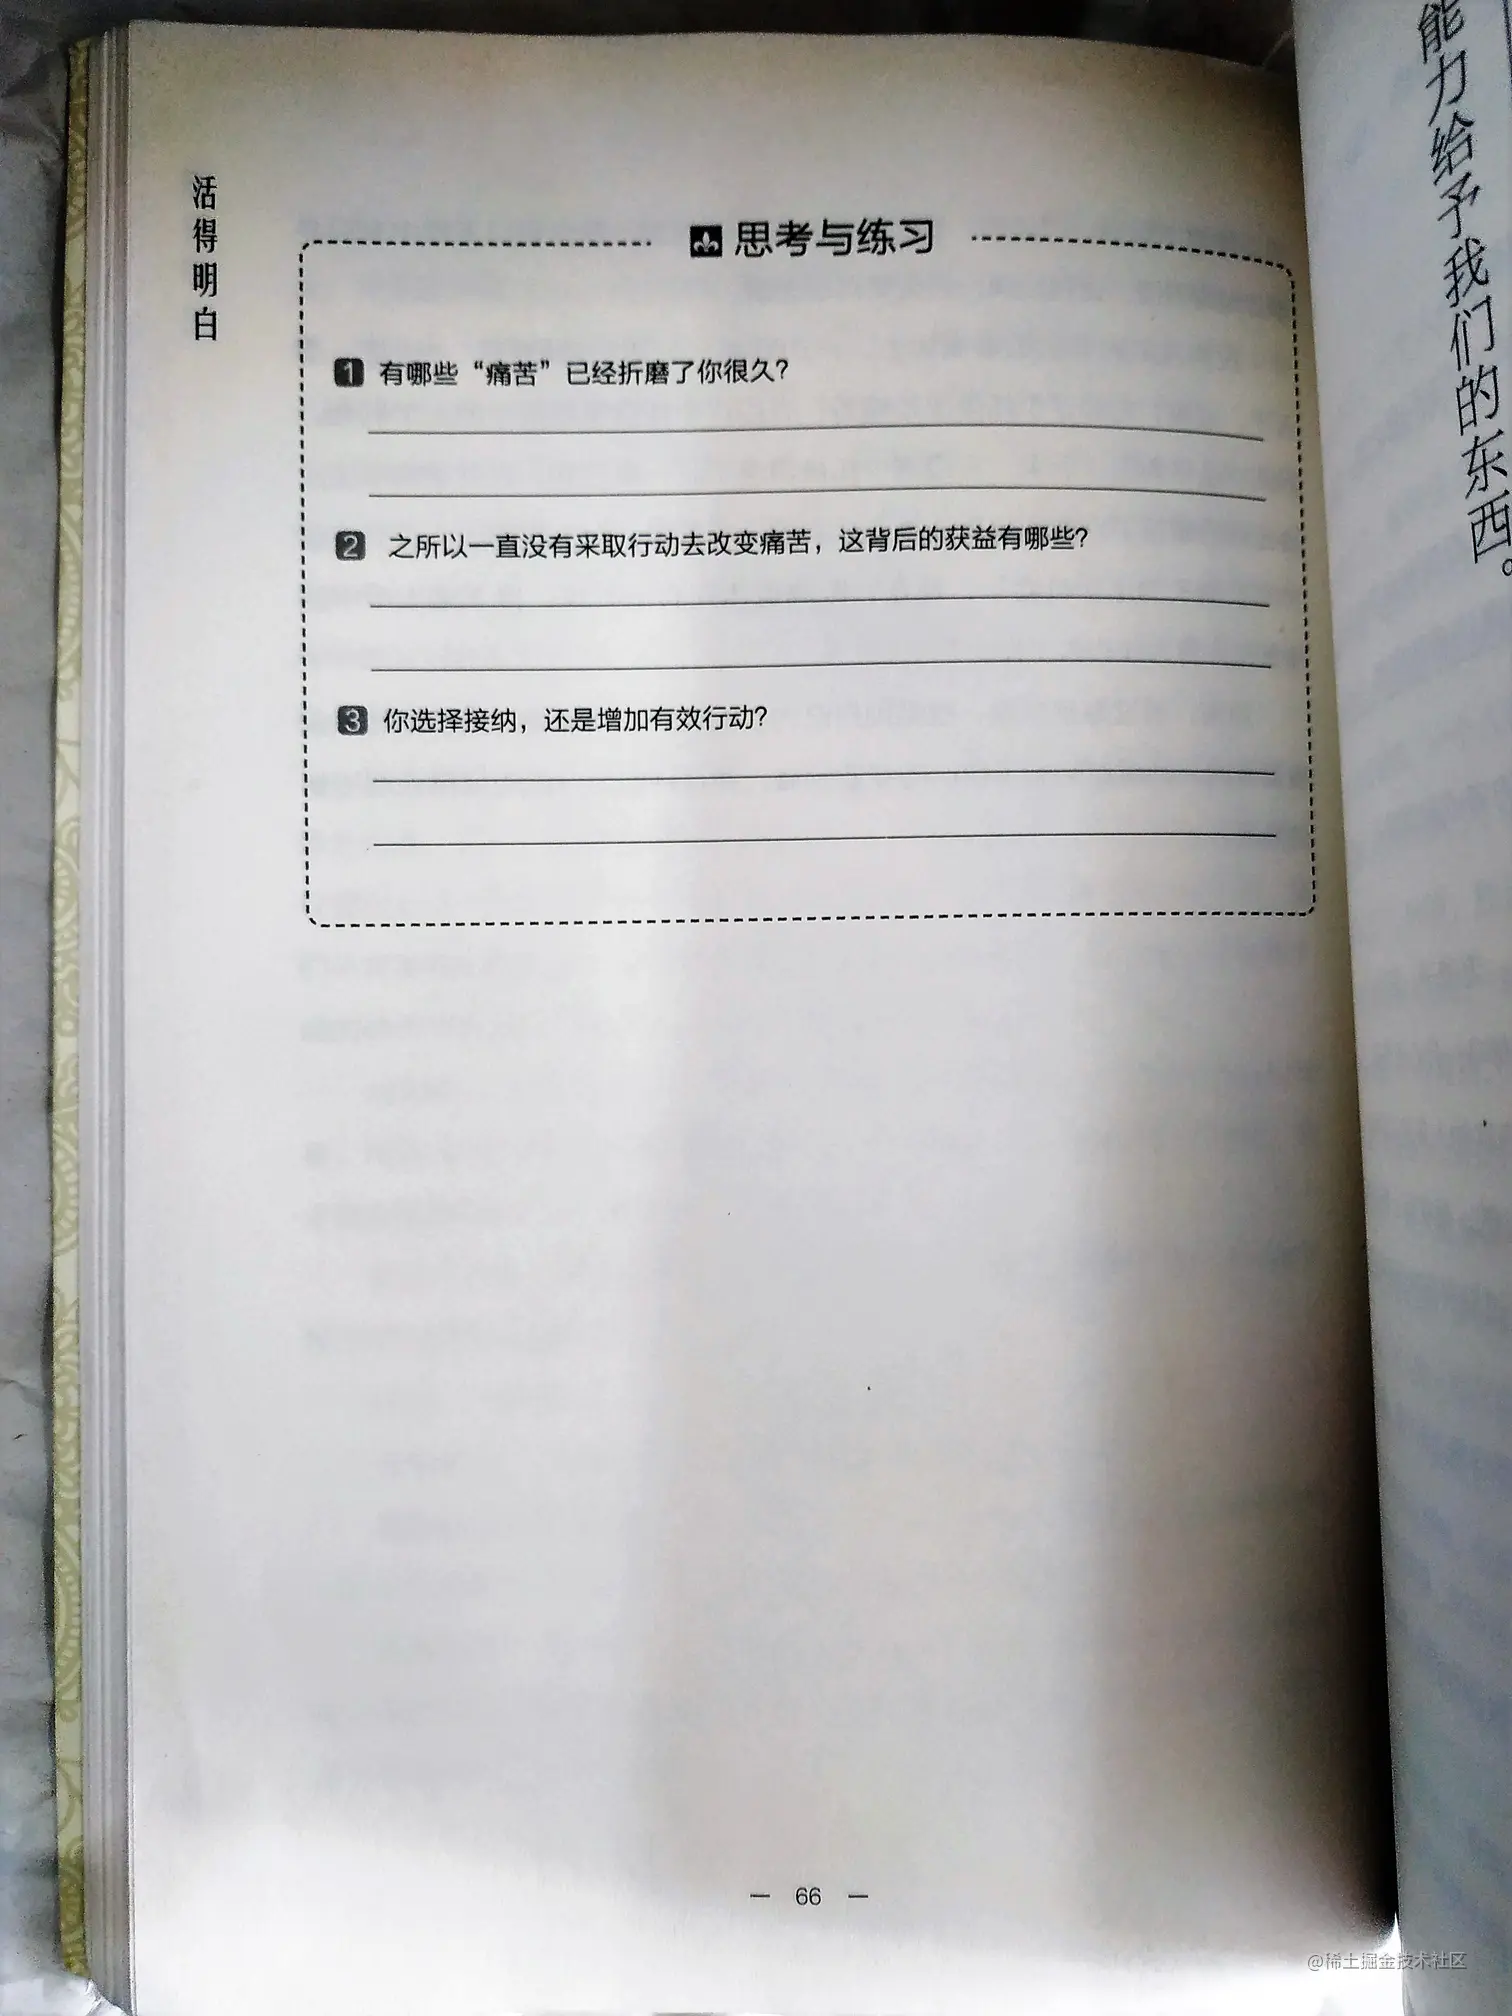 活得明白
思考与练习
1 有哪些“痛苦”已经折磨了你很久？
2 之所以一直没有采取行动去改变痛苦，这背后的获益有哪些？
3 你选择接纳，还是增加有效行动？
— 66 —
能力给予我们的东西。
@稀土掘金技术社区